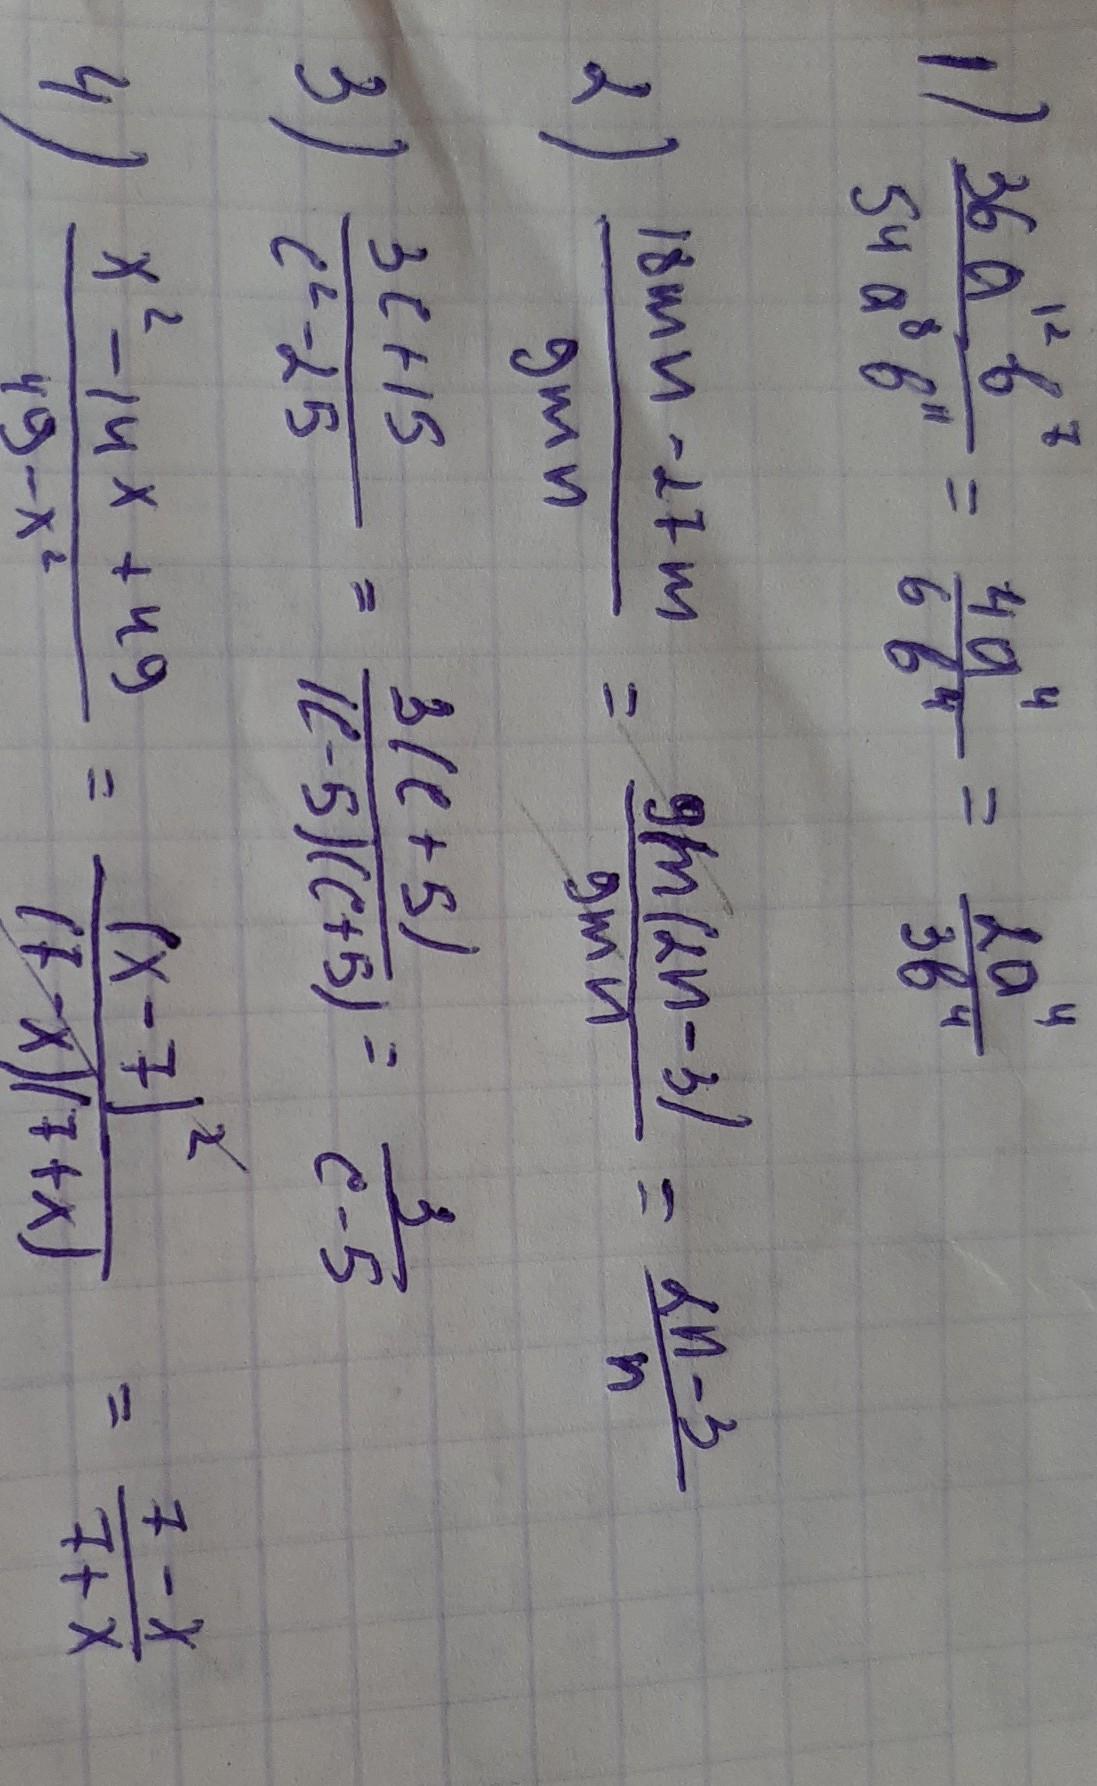 1) 36a¹²b⁷/54a⁸b¹¹ = 4a⁴/6b⁴ = 2a⁴/3b⁴
2) 18mn-27m/9mn = 9m(2n-3)/9mn = 2n-3/n
3) 3c+15/c²-25 = 3(c+5)/(c-5)(c+5) = 3/c-5
4) x²-14x+49/49-x² = (x-7)²/(7-x)(7+x) = 7-x/7+x